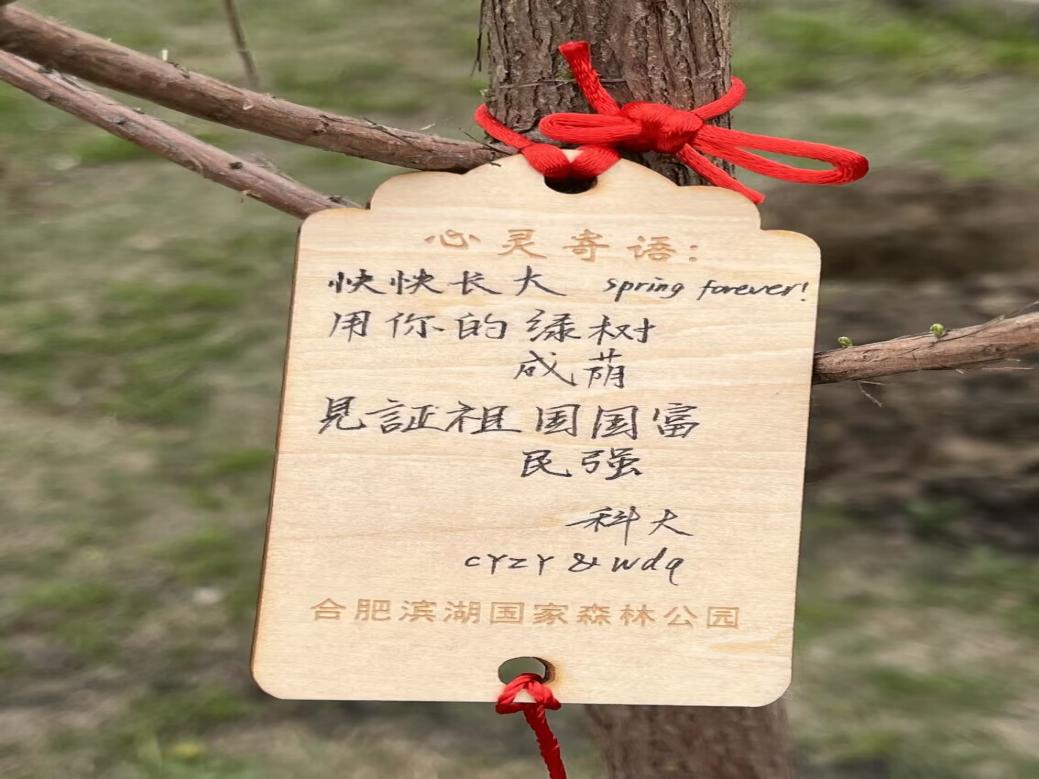 心灵寄语:
快快长大 spring forever!
用你的绿树
成荫
見証祖国国富
民强
科大
cyzy & wdq
合肥滨湖国家森林公园